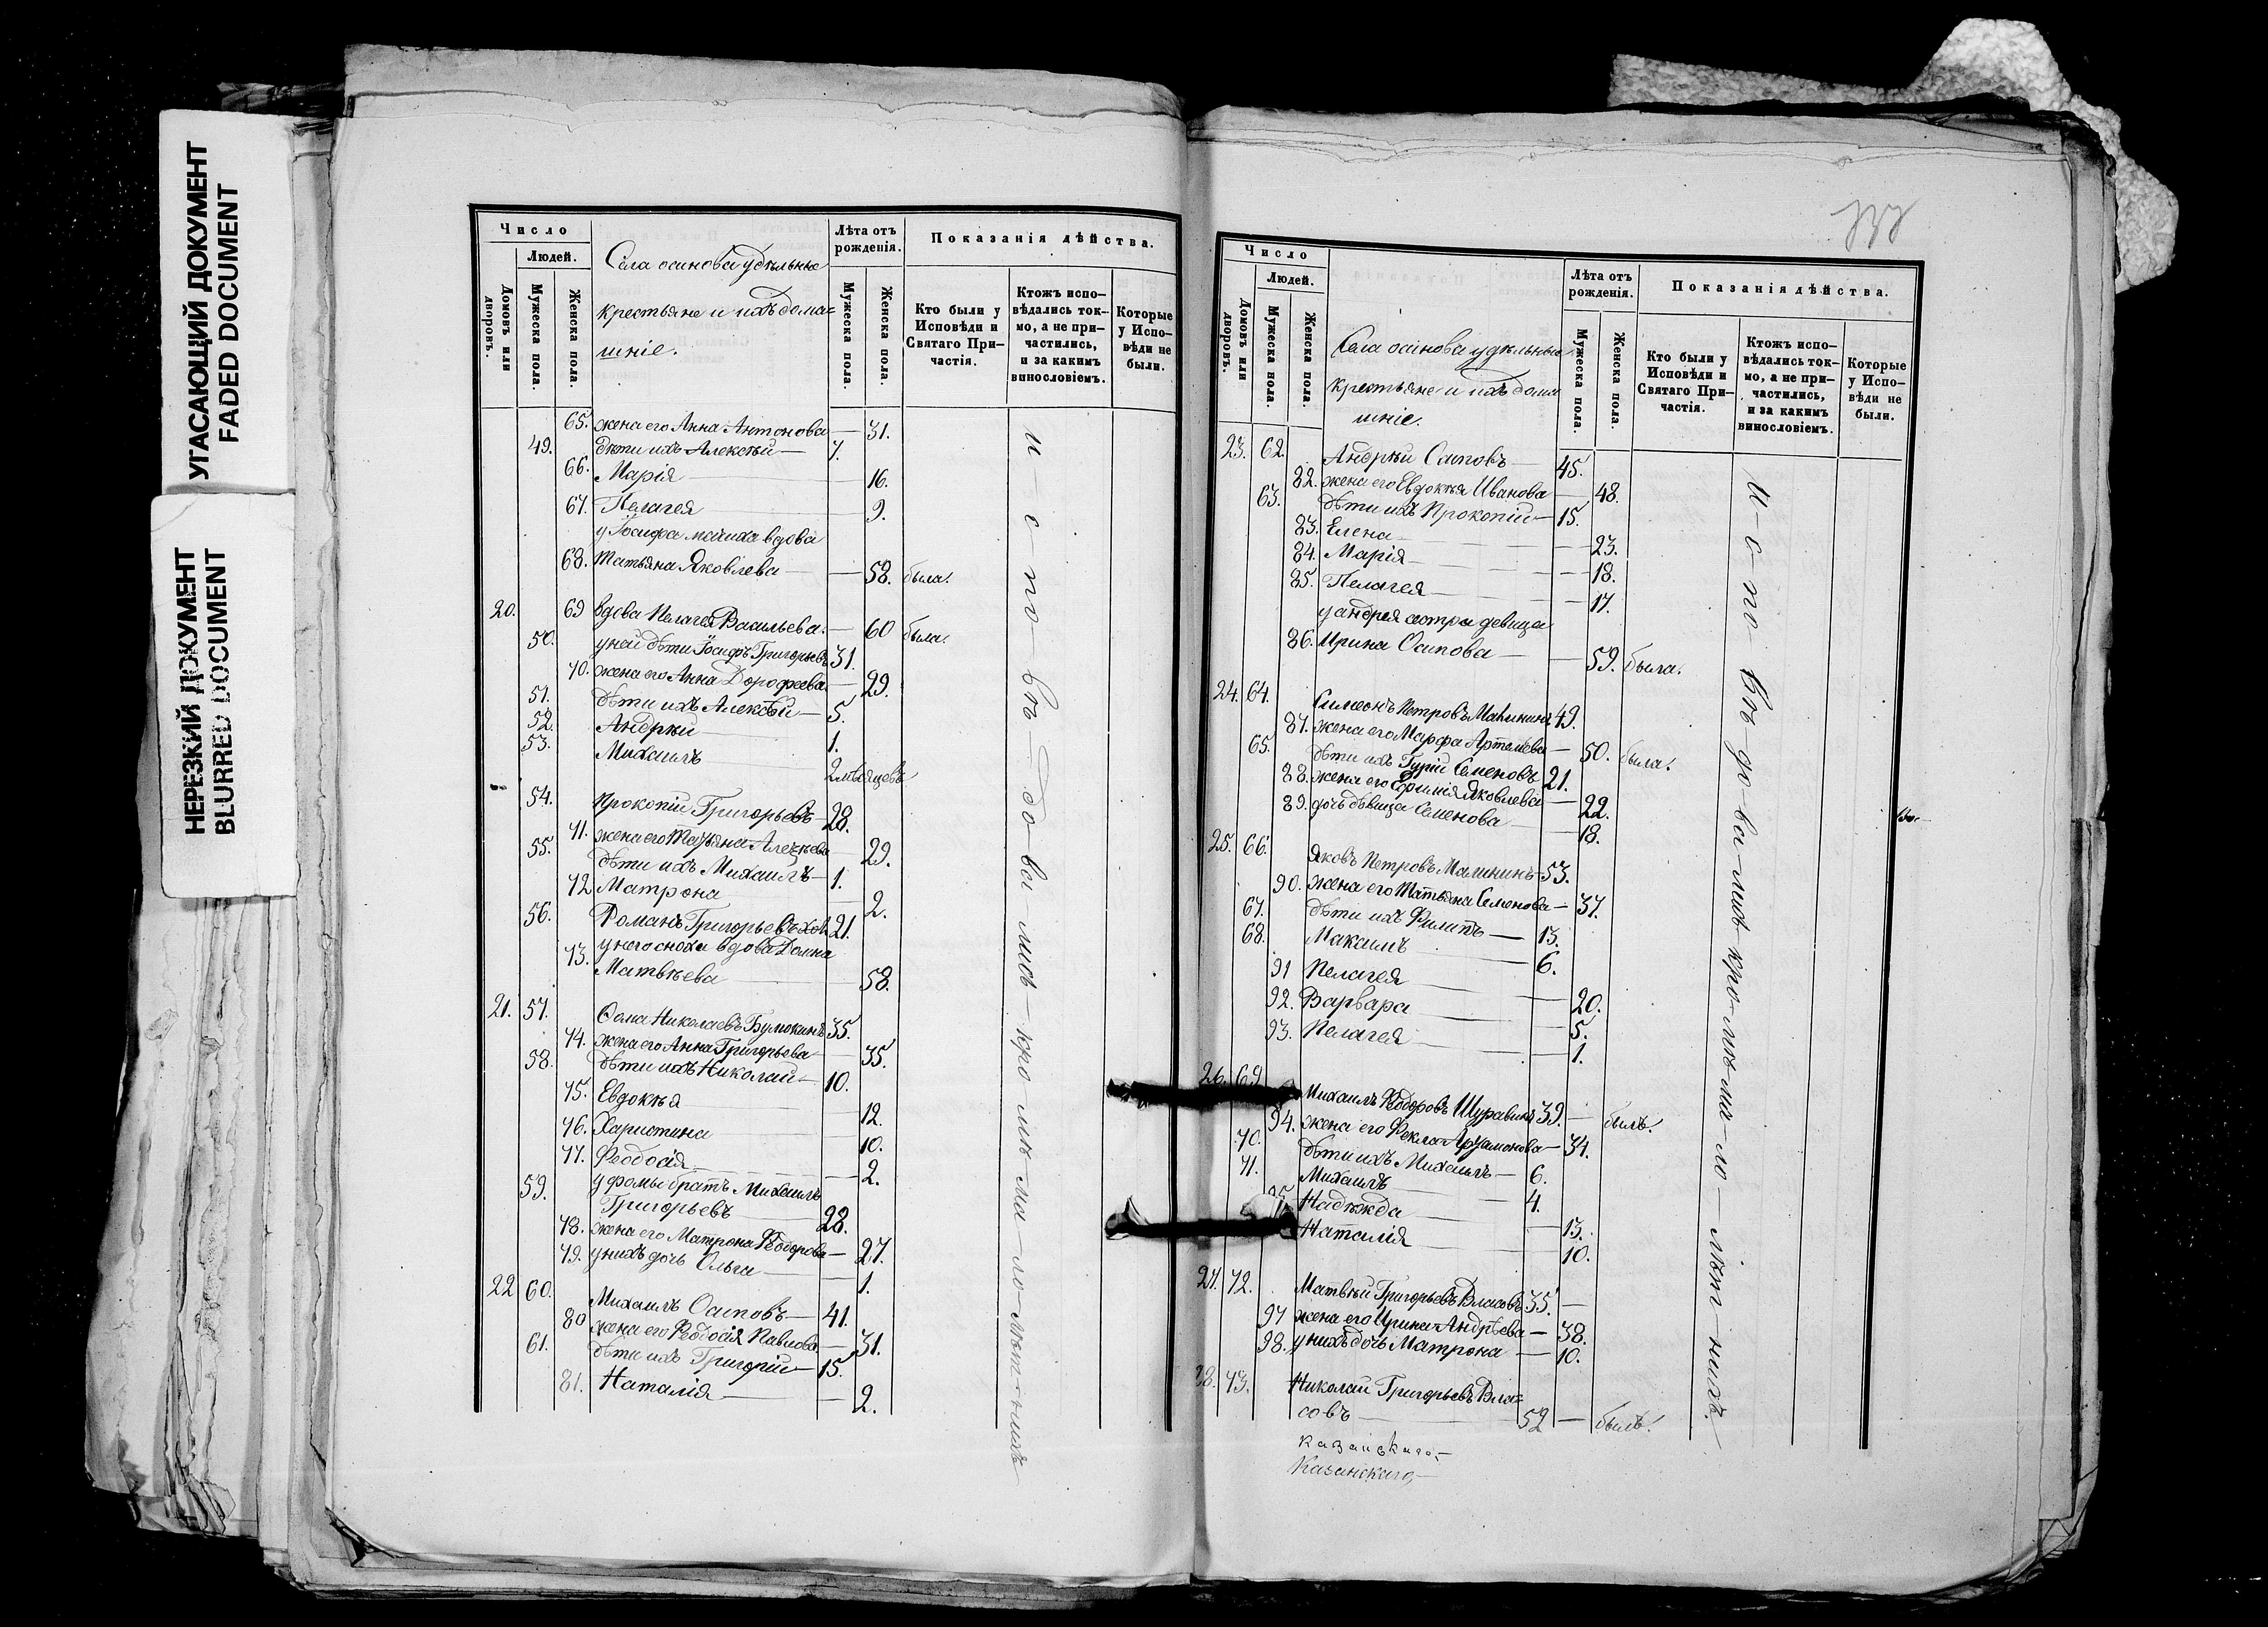 УГАСАЮЩИЙ ДОКУМЕНТ
FADED DOCUMENT
НЕРЕЗКИЙ ДОКУМЕНТ
BLURRED DOCUMENT
Число
Людей.
Домовъ или дворовъ.
Мужеска пола.
Женска пола.
Села осинова удѣльные
крестьяне и ихъ дома=
шніе.
Лѣта отъ рожденія.
Мужеска пола.
Женска пола.
Показанія дѣйства.
Кто были у Исповѣди и Святаго Причастія.
Ктожъ исповѣдались токмо, а не причастились, и за какимъ винословіемъ.
Которые у Исповѣди не были.
65. жена его Анна Антонова — 31.
49. дѣти ихъ Алексѣй — 7.
66. Марія — 16.
67. Пелагея — 9.
у Іосифа мачиха вдова
68. Татьяна Яковлева — 58. была.
20. 69 вдова Пелагея Васильева — 60 была.
50. у ней дѣти Іосифъ Григорьевъ 31.
70. жена его Анна Дорофеева — 29.
51. дѣти ихъ Алексѣй — 5.
52. Андрѣй — 1.
53. Михаилъ 2 мѣсяцевъ
54. Прокопій Григорьевъ — 28.
71. жена его Татьяна — 29.
55. дѣти ихъ Михаилъ — 1.
72 Матрона — 2.
56. Романъ Григорьевъ 21.
у него сноха вдова Домна
73. Матвѣева — 58.
21. 57. Фома Николаевъ 35.
74. жена его Анна Григорьева — 35.
58. дѣти ихъ Николай — 10.
75. Евдокѣя — 12.
76. Харистина — 10.
77. Феодосія — 2.
59. у фомы братъ Михаилъ
Григорьевъ — 28.
78. жена его Матрона Ѳедорова — 27.
79. у нихъ дочь Ольга — 1.
22 60. Михаилъ Осиповъ — 41.
80 жена его Феодосія Павлова — 31.
61. дѣти ихъ Григорій — 15.
81. Наталія — 2.
и-с-по-вѣ-до-ва-лись-кро-мѣ-ма-ло-лѣт-нихъ
Число
Людей.
Домовъ или дворовъ.
Мужеска пола.
Женска пола.
Села осинова удѣльные
крестьяне и ихъ дома
шніе.
Лѣта отъ рожденія.
Мужеска пола.
Женска пола.
Показанія дѣйства.
Кто были у Исповѣди и Святаго Причастія.
Ктожъ исповѣдались токмо, а не причастились, и за какимъ винословіемъ.
Которые у Исповѣди не были.
23. 62. Андрѣй Осиповъ — 45.
82. жена его Евдокѣя Иванова — 48.
63. дѣти ихъ Прокопій — 15.
83. Елена — 23.
84. Марія — 18.
85. Пелагея — 17.
у андрея сестра девица
86. Ирина Осипова — 59. была.
24. 64. Симеонъ Петровъ 49.
87. жена его Марфа Артемьева — 50. была.
65. дѣти ихъ Гурій Семеновъ 21.
88. жена его Яковлева — 22.
89. дочь дѣвица Семенова — 18.
25. 66. Яковъ Петровъ Малининъ 53.
90. жена его Татьяна Семенова — 37.
67. дѣти ихъ Филипъ — 13.
68. Максимъ — 6.
91 Пелагея — 20.
92. Варвара — 5.
93. Пелагея — 1.
26. 69 Михаилъ Ѳедоровъ 39. — былъ.
94. жена его Фекла Арзамонова — 34.
70. дѣти ихъ Михаилъ — 6.
71. Михаилъ — 4.
Надѣжда — 13.
Наталія — 10.
27. 72. Матвѣй Григорьевъ Власовъ 35. —
97 жена его Ирина Андрѣева — 38.
98. у нихъ дочь Матрона — 10.
28. 73. Николай Григорьевъ Вла=
совъ — 52 — былъ.
и-с-по-вѣ-до-ва-лись-кро-мѣ-ма-ло-лѣт-нихъ.
Казанскаго,
Казанскаго,